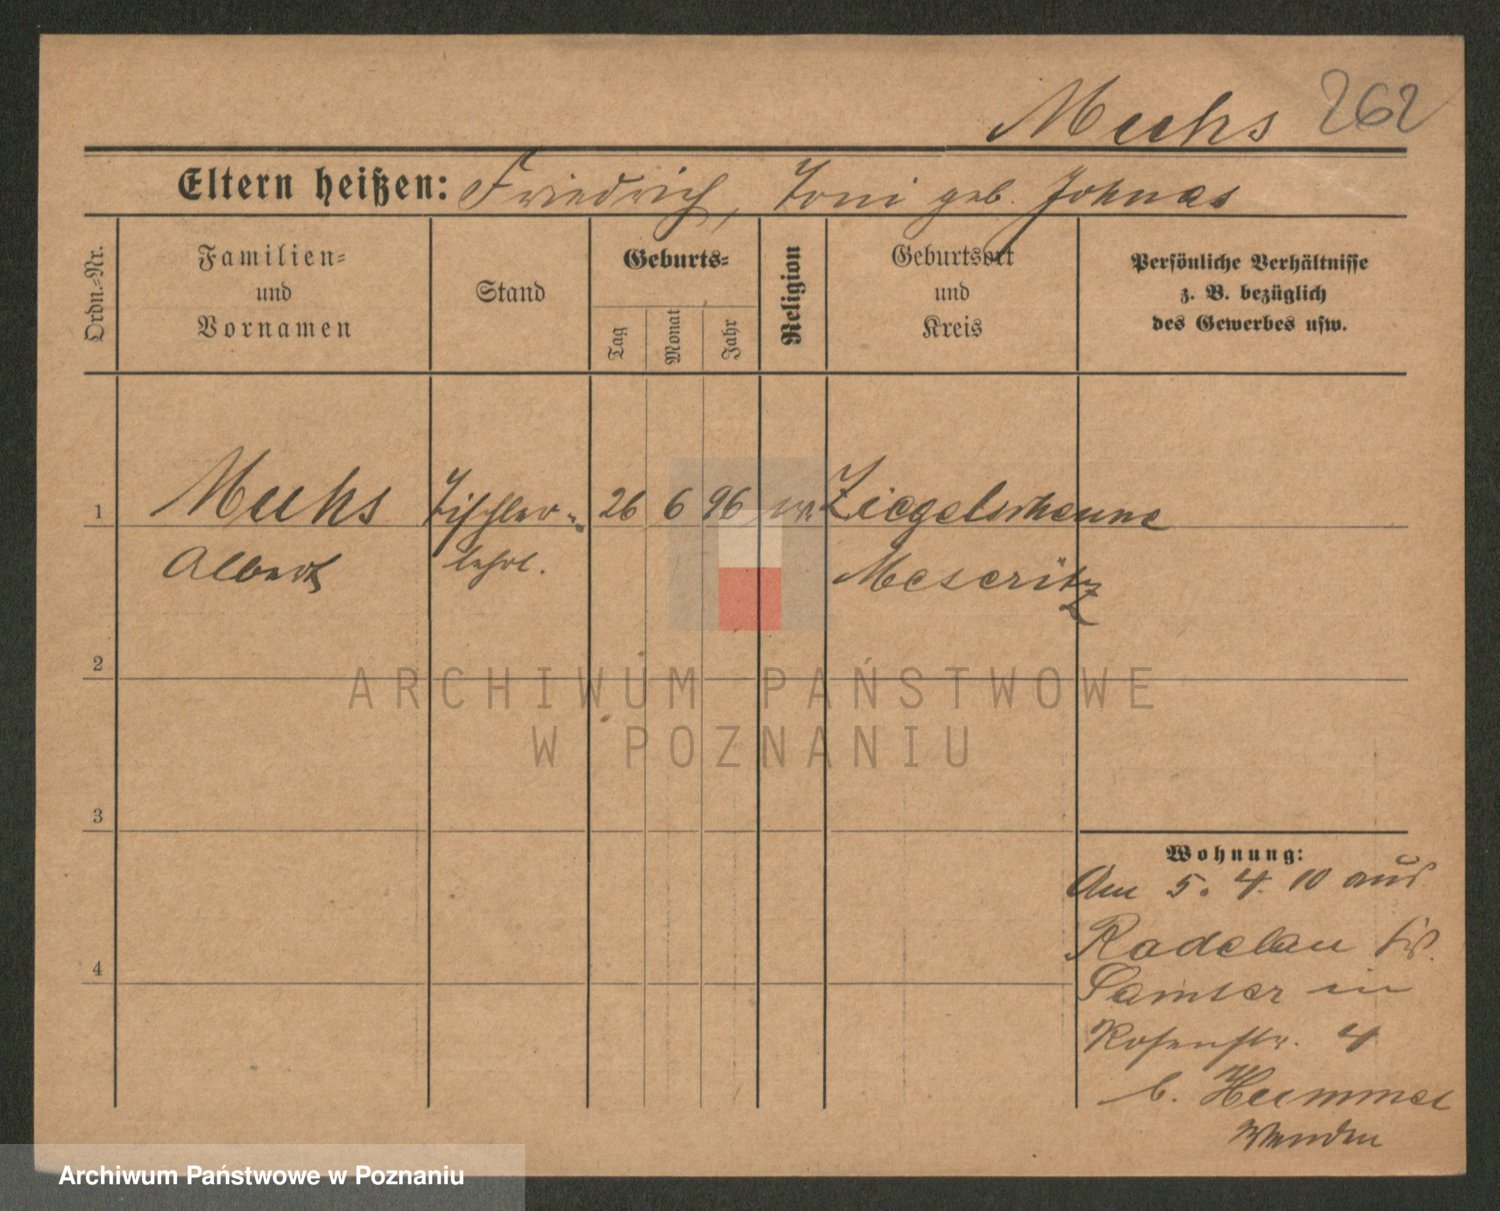 Muchs 262
Eltern heißen: Friedrich, Toni geb. Johnas
Ordn.-Nr.
Familien-
und
Vornamen
Stand
Geburts-
Tag
Monat
Jahr
Religion
Geburtsort
und
Kreis
Persönliche Verhältnisse
z. B. bezüglich
des Gewerbes usw.
1 Muchs Tischler- 26 6 96 Ziegelscheune
Albert lehrl. Meseritz
2
ARCHIWUM PAŃSTWOWE
W POZNANIU
3
4
Wohnung:
Am 5. 4. 10 aus
Radelau
Samter in
Rosenstr. 4
b. Hummel
Wenden
Archiwum Państwowe w Poznaniu